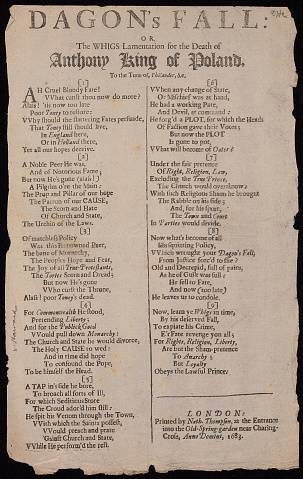 DAGON's FALL:
OR,
The WHIGS Lamentation for the Death of
Anthony King of Poland.
To the Tune of, Philander, &c.
[1]
AH Cruel Bloody Fate!
VVhat canst thou now do more?
Alas! 'tis now too late
Poor Tony to restore:
VVhy should the flattering Fates persuade,
That Tony still should live,
In England here,
Or in Holland there,
Yet all our hopes deceive.
[2]
A Noble Peer He was,
And of Notorious Fame;
But now He's gone (alass!)
A Pilgrim o're the Main:
The Prop and Pillar of our hope
The Patron of our CAUSE,
The Scorn and Hate
Of Church and State,
The Urchin of the Laws.
[3]
Of matchless Policy
Was this Renowned Peer,
The bane of Monarchy,
The People's Hope and Fear,
The Joy of all True-Protestants,
The Tories Scorn and Dread:
But now He's gone
VVho curst the Throne,
Alass! poor Tony's dead.
[4]
For Commonwealth He stood,
Pretending Liberty;
And for the Publick Good
VVould pull down Monarchy:
The Church and State he would divorce,
The Holy CAUSE to wed:
And in time did hope
To confound the Pope,
To be himself the Head.
[5]
A TAP in's side he bore,
To broach all sorts of ill,
For which Seditious Store
The Croud ador'd him still:
He spit his Venom through the Town,
VVith which the Saints possest,
VVould preach and prate
'Gainst Church and State,
VVhile He perform'd the rest.
[6]
VVhen any change of State,
Or Mischief was at hand,
He had a working Pate,
And Devil, at command:
He forg'd a PLOT, for which the Heads
Of Faction gave their Votes;
But now the PLOT
Is gone to pot,
VVhat will become of Oates?
[7]
Under the fair pretence
Of Right, Religion, Law,
Excluding the True Prince,
The Church would overthrow:
With such Religious Sham he brought
The Rabble on his side;
And, for his sport,
The Town and Court
In Parties would divide.
[8]
Now what's become of all
His squinting Policy,
VVhich wrought your Dagon's Fall,
From Justice forc'd to flie?
Old and Decrepid, full of pains,
As he of Guilt was full;
He fell to Fate,
And now (too late)
He leaves us to condole.
[9]
Now, learn ye Whigs in time,
By his deserved Fall,
To expiate his Crime,
E're Fate revenge you all;
For Rights, Religion, Liberty,
Are but the Sham-pretence
To Anarchy;
But Loyalty
Obeys the Lawful Prince.
LONDON:
Printed by Nath. Thompson, at the Entrance
into the Old-Spring-garden near Charing-
Cross, Anno Domini, 1683.